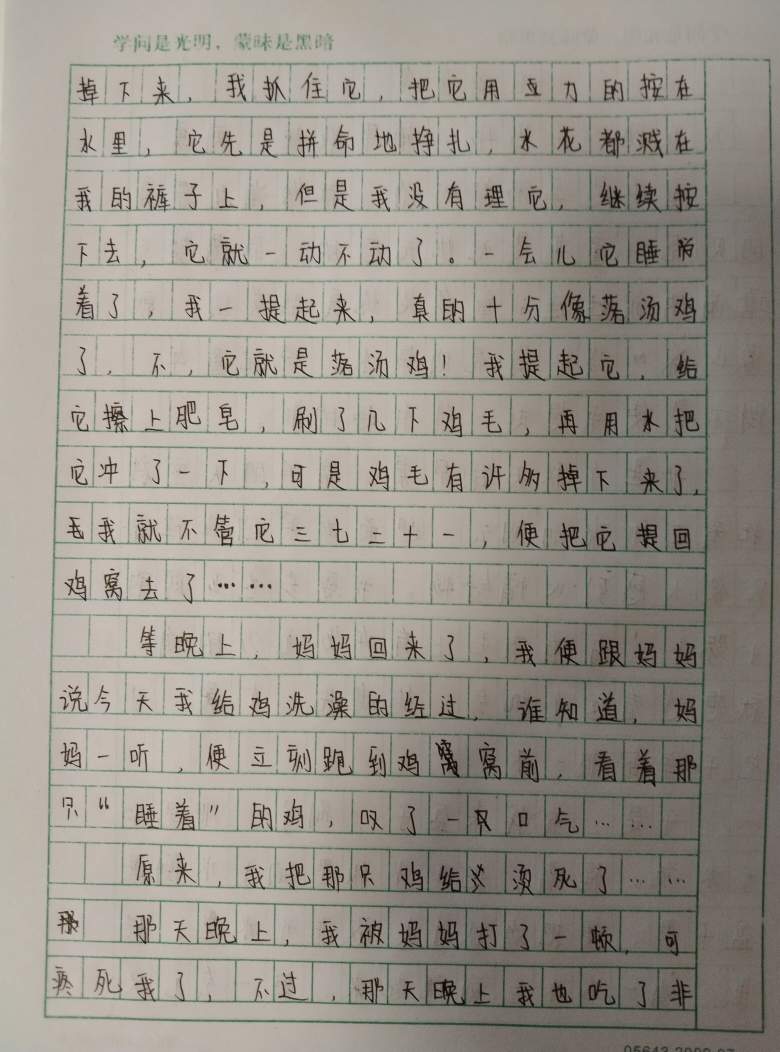 学问是光明，蒙昧是黑暗
掉下来，我抓住它，把它用互力的按在
水里，它先是拼命地挣扎，水花都溅在
我的裤子上，但是我没有理它，继续按
下去，它就一动不动了。一会儿它睡
着了，我一提起来，真的十分像落汤鸡
了，不，它就是落汤鸡！我提起它，给
它擦上肥皂，刷了几下鸡毛，再用水把
它冲了一下，可是鸡毛有许多掉下来了，
我就不管它三七二十一，便把它提回
鸡窝去了……
等晚上，妈妈回来了，我便跟妈妈
说今天我给鸡洗澡的经过，谁知道，妈
妈一听，便立刻跑到鸡窝前，看着那
只“睡着”的鸡，叹了一口气……
原来，我把那只鸡给烫死了……
那天晚上，我被妈妈打了一顿，可
疼死我了，不过，那天晚上我也吃了非